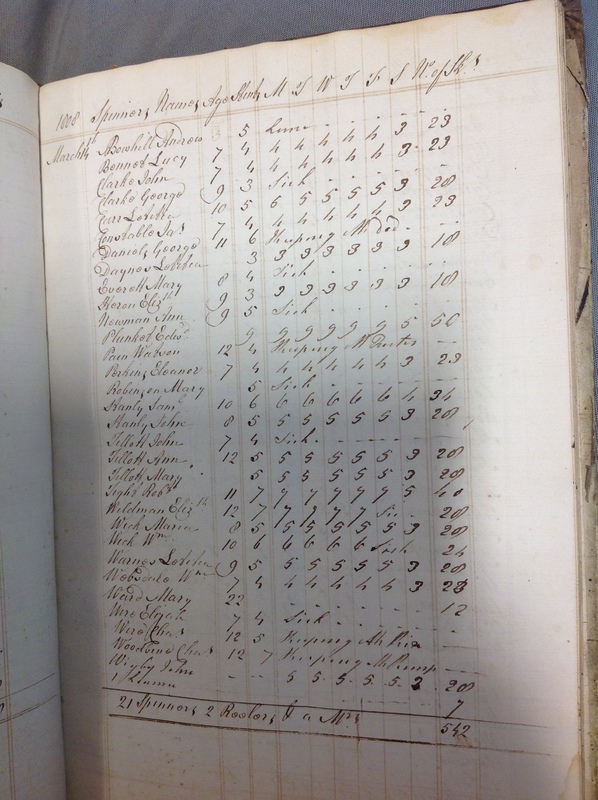 1808 Spinners Names Age Stint M T W T F S No. of Sk.s
March 14th Andrew 5 Lame
Bennet Lucy 7 4 4 4 4 4 4 3 23
Clarke John 7 4 4 4 4 4 4 3 23
Clarke George 9 3 Sick
10 5 6 5 5 5 5 3 28
Constable Jas 7 4 4 4 4 4 4 3 23
Daniels George 11 6 Keeping
Daynes 3 3 3 3 3 3 3 18
Everett Mary 8 4 Sick
Heron Elizth 9 3 3 3 3 3 3 3 18
Newman Ann 9 5 Sick
Plunket Edwd 9 9 9 9 9 9 5 50
Pain Watson 12 4 Keeping
Perkins Eleanor 7 4 4 4 4 4 4 3 23
Robinson Mary 5 Sick
Stanly Saml 10 6 6 6 6 6 6 4 34
Stanly John 8 5 5 5 5 5 5 3 28
Tillott John 7 4 Sick
Tillott Ann 12 5 5 5 5 5 5 3 28
Tillott Mary 5 5 5 5 5 5 3 28
Robt 11 7 7 7 7 7 7 5 40
Wildman Elizth 12 7 7 7 7 7 28
Wick Maria 8 5 5 5 5 5 5 3 28
Wick Wm 10 6 6 6 6 6 Sick 24
9 5 5 5 5 5 5 3 28
Wm 7 4 4 4 4 4 4 3 23
Ward Mary 22 12
Elijah 7 4 Sick
Chas 12 5 Keeping
Chas 12 7 Keeping
Wigby John 5 5 5 5 5 3 28
7
21 Spinners 2 Reelers & a Mrs 542